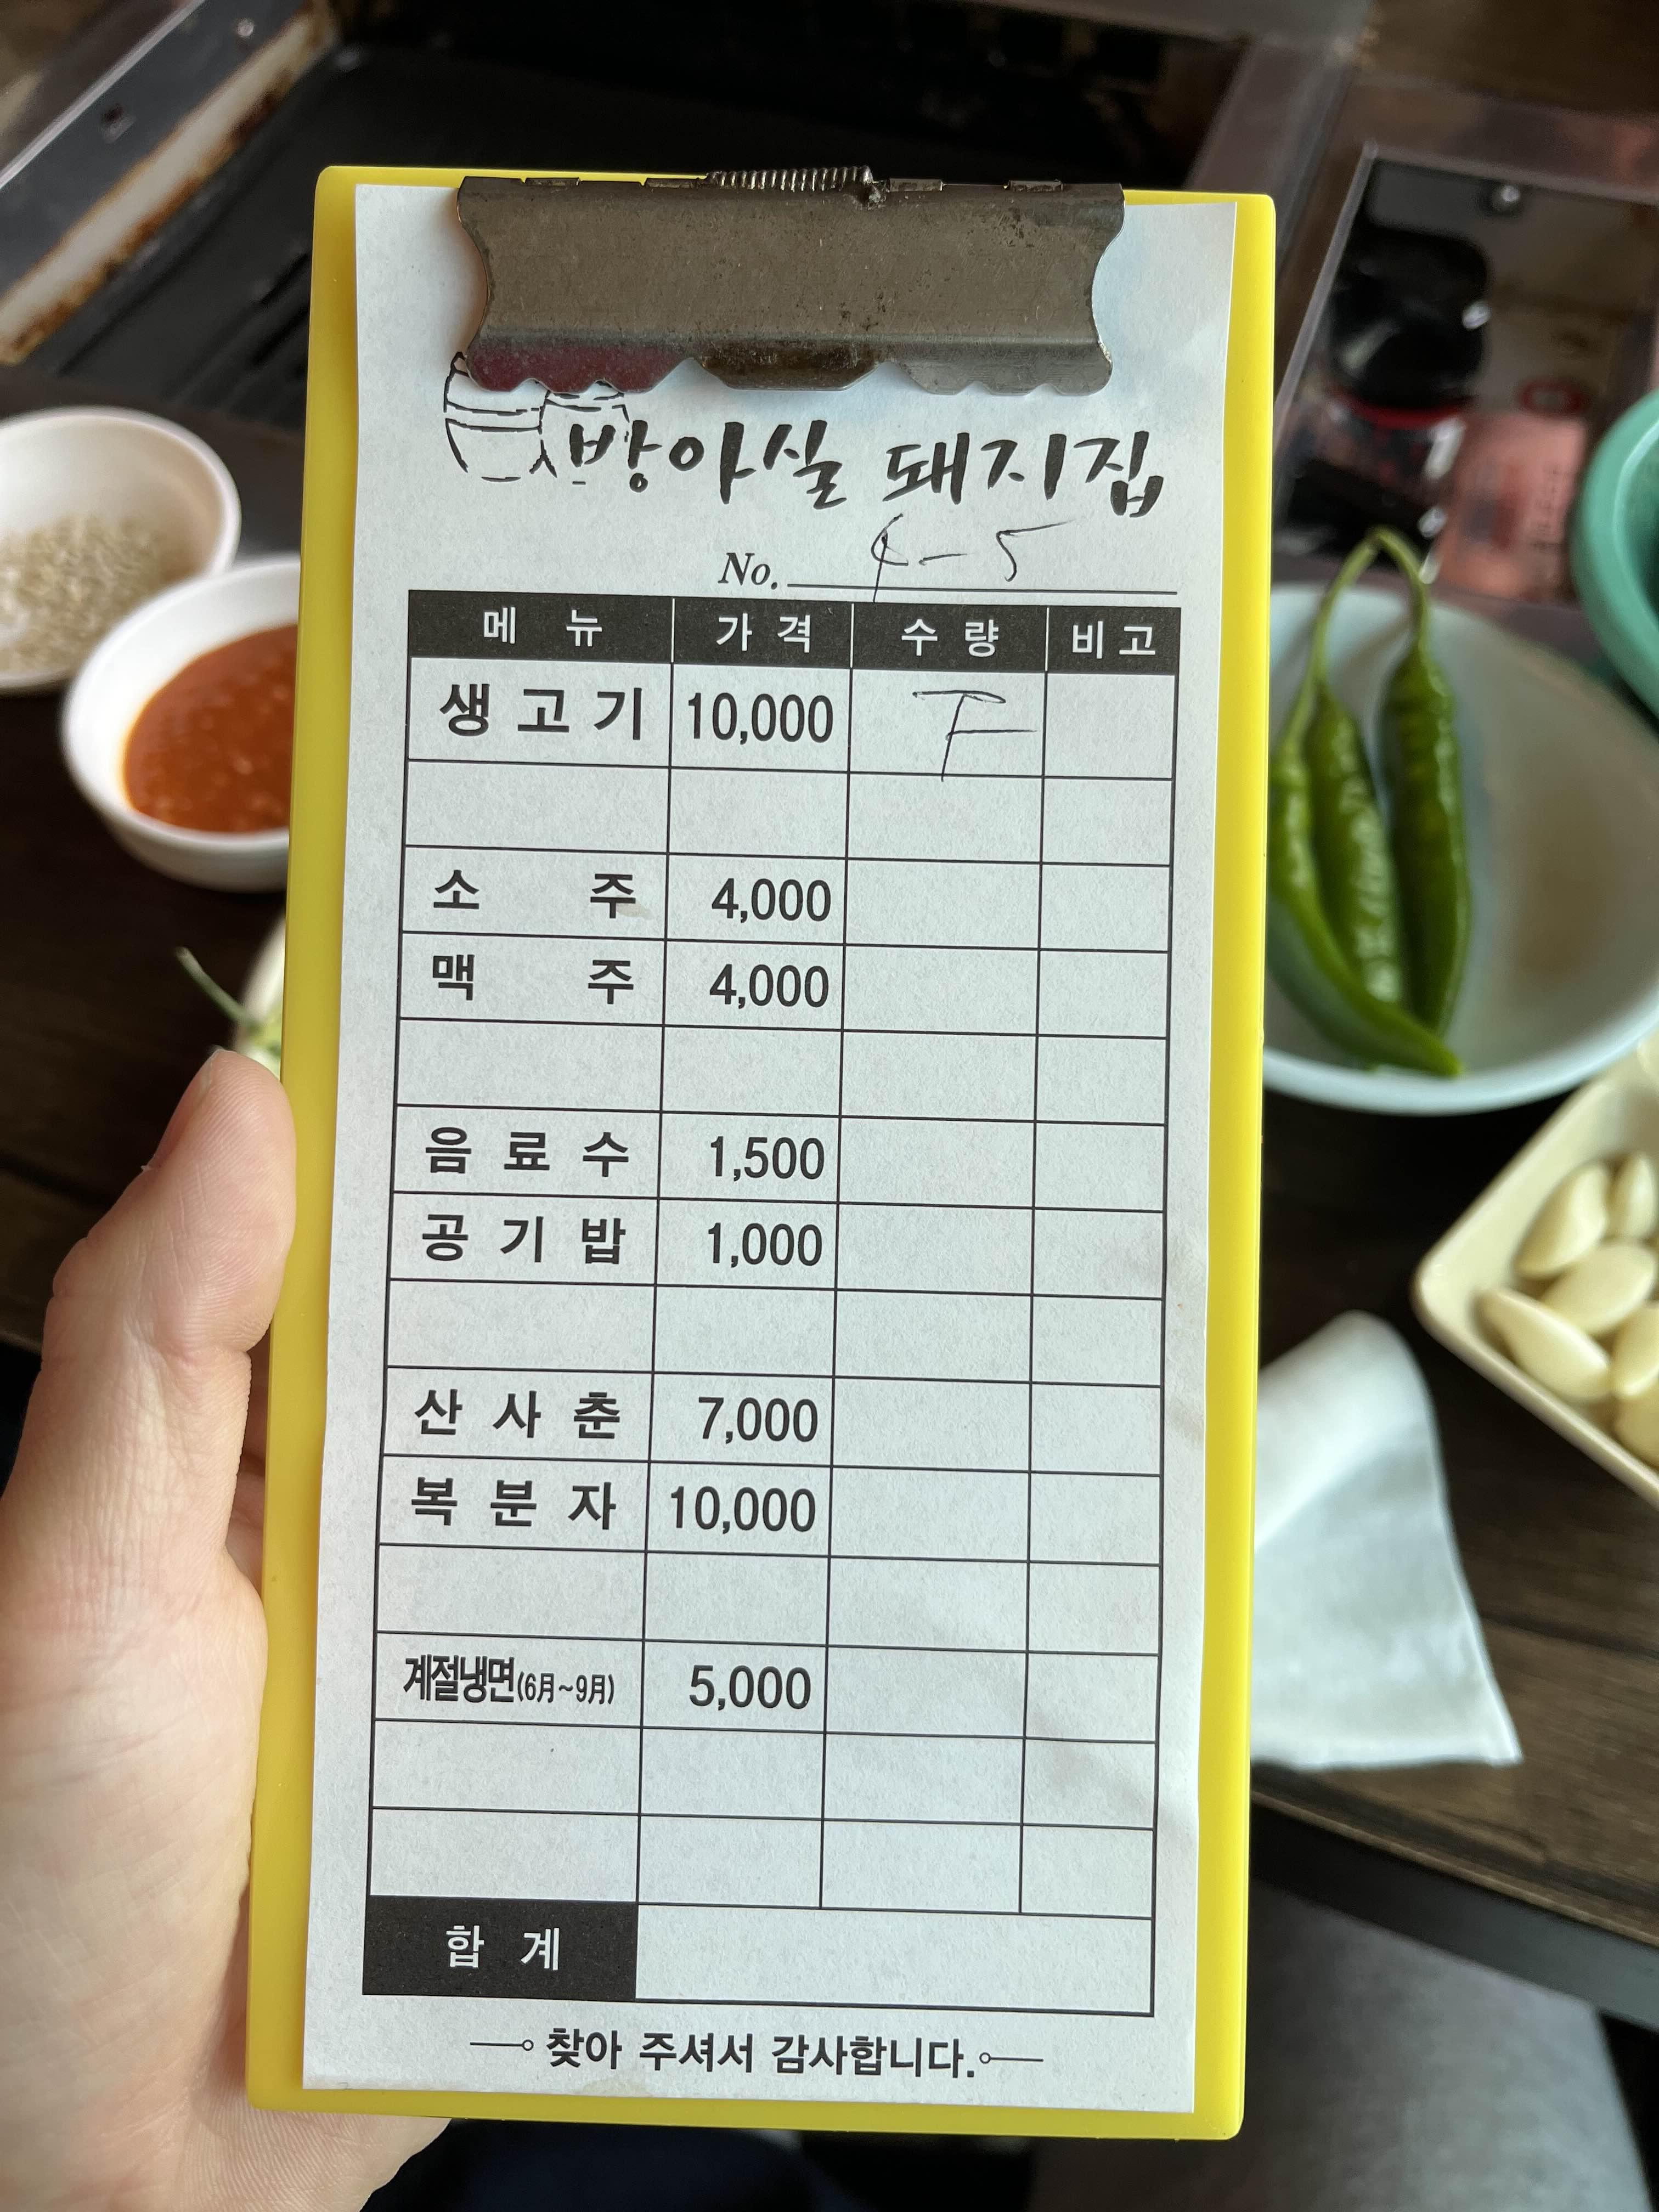 방아실 돼지집
No. 4-5
메 뉴 가 격 수 량 비 고
생 고 기 10,000
소 주 4,000
맥 주 4,000
음 료 수 1,500
공 기 밥 1,000
산 사 춘 7,000
복 분 자 10,000
계절냉면(6月~9月) 5,000
합 계
찾아 주셔서 감사합니다.